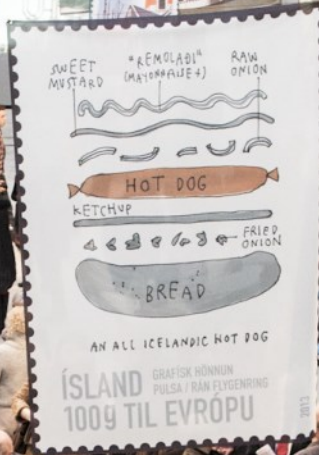 SWEET MUSTARD
"REMOLAÐI" (MAYONNAISE+)
RAW ONION
HOT DOG
KETCHUP
FRIED ONION
BREAD
AN ALL ICELANDIC HOT DOG
ÍSLAND
GRAFÍSK HÖNNUN
PULSA / RÁN FLYGENRING
100g TIL EVRÓPU
2013